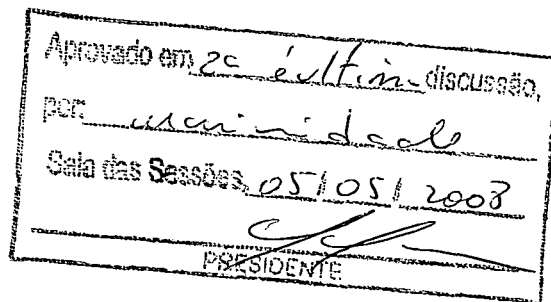 Aprovado em 2ª é última discussão,
por: unanimidade
Sala das Sessões, 05/05/2003
PRESIDENTE